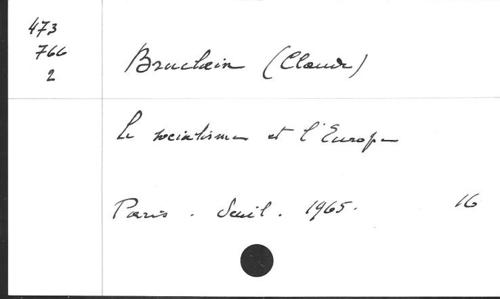 473
766
2
Bruclain (Claude)
Le socialisme et l'Europe
Paris . Seuil . 1965. 16